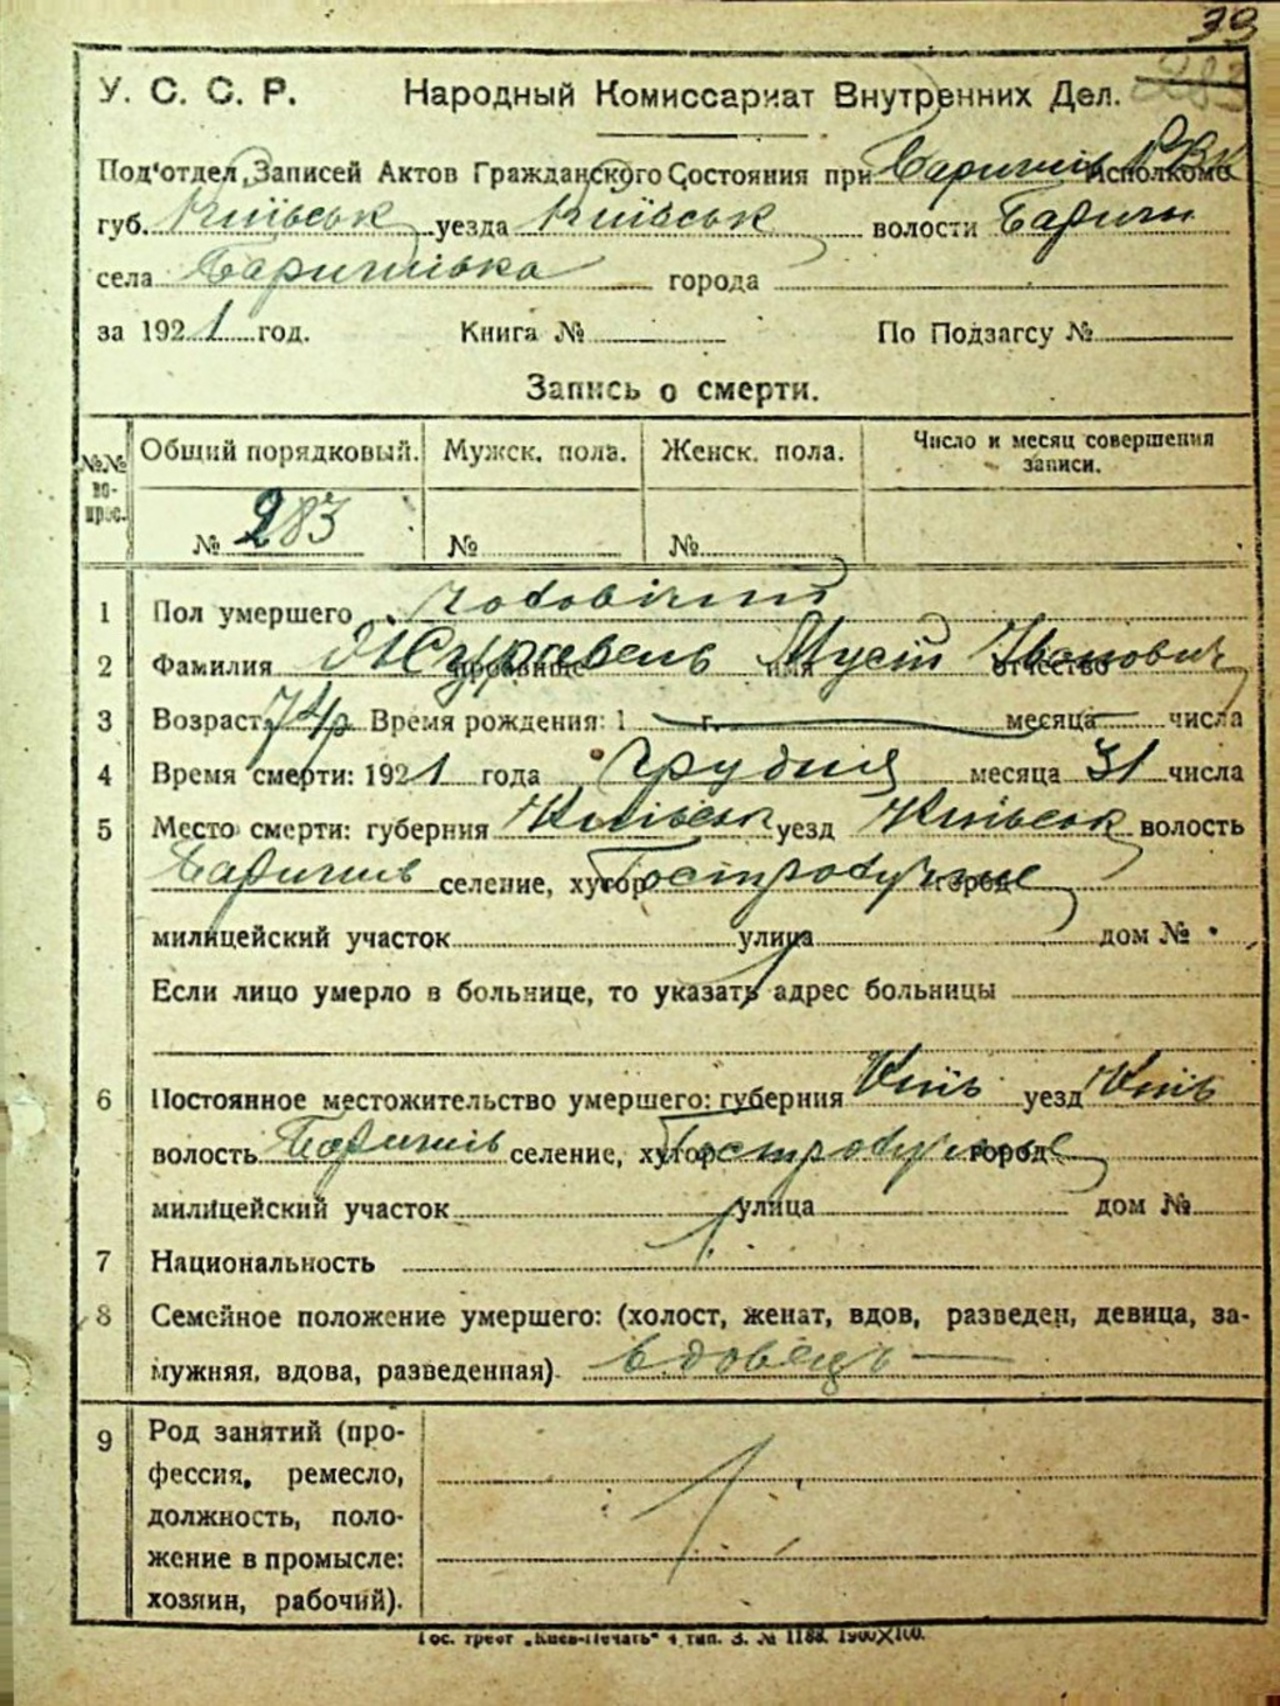 39
283
У. С. С. Р. Народный Комиссариат Внутренних Дел.
Под'отдел Записей Актов Гражданского Состояния при Баришів РВК Исполкоме
губ. Київськ уезда Київськ волости Бариш
села Баришівка города
за 1921 год. Книга № По Подзагсу №
Запись о смерти.
№№ вопрос. Общий порядковый. Мужск. пола. Женск. пола. Число и месяц совершения записи.
№ 283 № №
1 Пол умершего чоловічий
2 Фамилия Журавель Мусій Іванович
прозвище имя отчество
3 Возраст 74р Время рождения: 1 г. месяца числа
4 Время смерти: 1921 года Грудня месяца 31 числа
5 Место смерти: губерния Київськ уезд Київськ волость
Баришів селение, хутор Гостролуччє город
милицейский участок улица дом №
Если лицо умерло в больнице, то указать адрес больницы
6 Постоянное местожительство умершего: губерния Київ уезд Київ
волость Баришів селение, хутор Гостролуччє город
милицейский участок улица дом №
7 Национальность
8 Семейное положение умершего: (холост, женат, вдов, разведен, девица, за-
мужняя, вдова, разведенная). вдовець
9 Род занятий (про-
фессия, ремесло,
должность, поло-
жение в промысле:
хозяин, рабочий).
Гос. трест „Киев-Печать" 4 тип. З. № 1188. 1900×100.